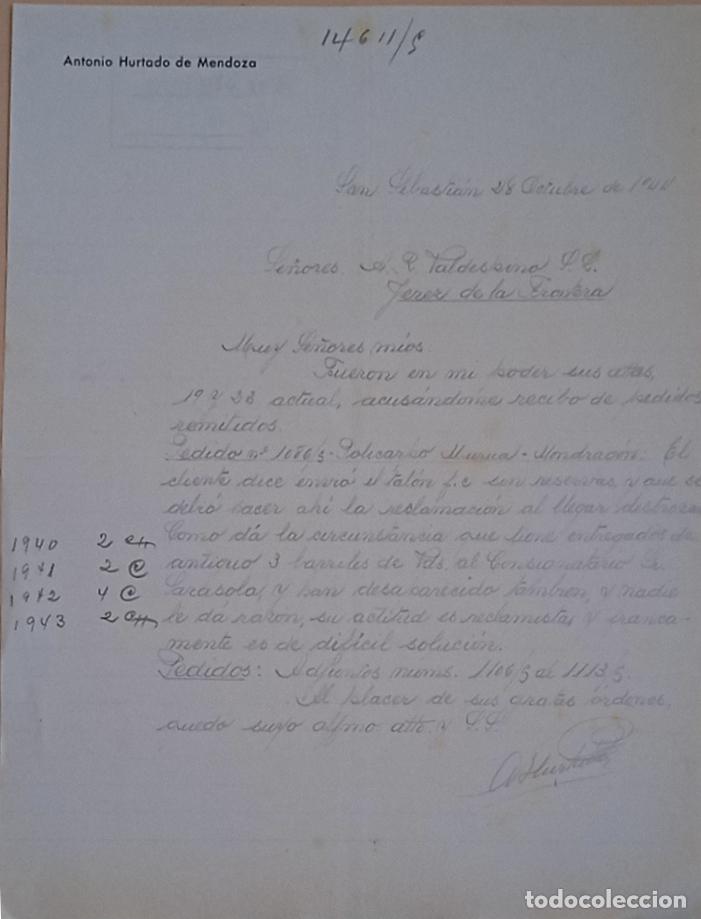 14611/5
Antonio Hurtado de Mendoza
San Sebastián 28 Octubre de 1944
Señores A. R. Valdespino S. C.
Jerez de la Frontera
Muy Señores míos.
Fueron en mi poder sus attas,
19 y 23 actual, acusándome recibo de pedidos
remitidos.
Pedido nº 1086/5 - Policarpo Murua - Mondragón: El
cliente dice envió el talón f.c sin reservas, y que se
debió hacer ahí la reclamación al llegar
Como dá la circunstancia que tiene entregados de
antiguo 3 barriles de Vds. al Consignatario Sr.
Sarasola, y han desaparecido tambien, y nadie
le dá razón, su actitud es reclamista, y franca-
mente es de dificil solución.
1940 2
1941 2 C
1942 4 C
1943 2
Pedidos: Adjuntos nums. 1106/5 al 1113/5.
Al placer de sus gratas órdenes,
quedo suyo affmo. atto. y S.S.
AHurtado
todocoleccion